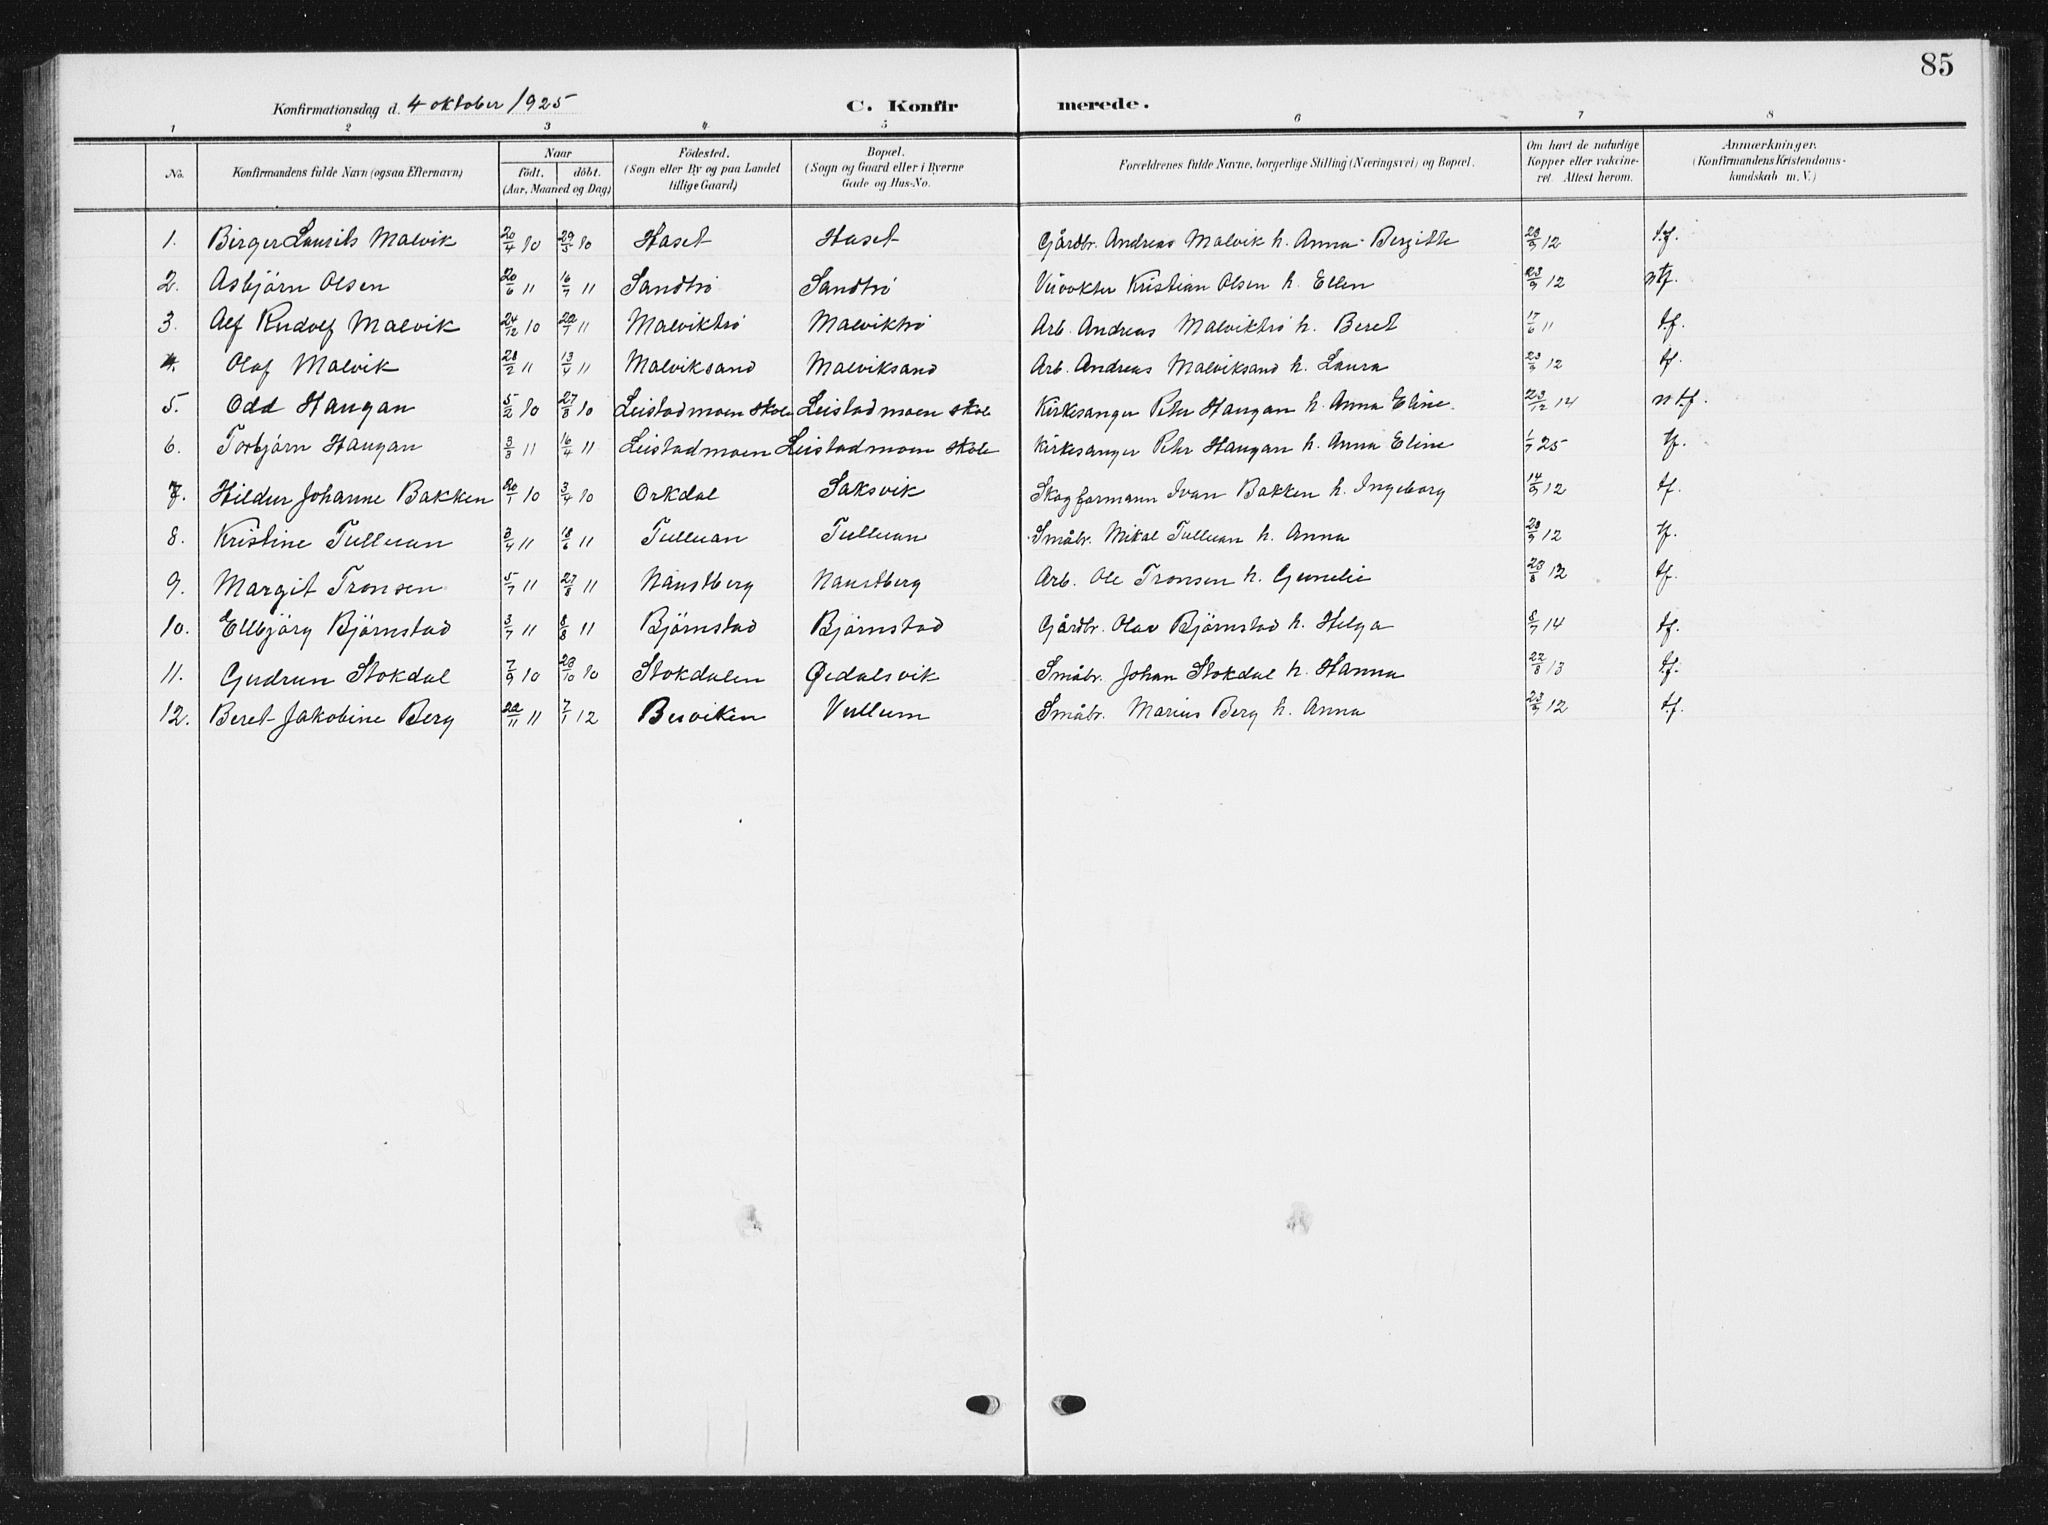 85
Konfirmationsdag d. 4 oktober 1925 C. Konfirmerede.
1 2 3 4 5 6 7 8
No. Konfirmandens fulde Navn (ogsaa Efternavn) Naar födt. döbt. (Aar, Maaned og Dag) Födested. (Sogn eller By og paa Landet tillige Gaard) Bopæl. (Sogn og Gaard eller i Byerne Gade og Hus-No. Forældrenes fulde Navne, borgerlige Stilling (Næringsvei) og Bopæl. Om havt de naturlige Kopper eller vakcineret. Attest herom. Anmærkninger. (Konfirmandens Kristendomskundskab m. V.)
1. Birger Laurits Malvik 20/4 10 29/5 10 Haset Haset Gårdbr. Andreas Malvik h. Anna Bergitte 23/9 12 t.f.
2. Asbjörn Olsen 20/6 11 16/7 11 Sandtrö Sandtrö Kristian Olsen h. Ellen 23/9 12 mtf.
3. Alf Rudolf Malvik 24/12 10 22/1 11 Malviktrö Malviktrö Arb. Andreas Malviktrö h. Beret 17/6 11 t.f.
4. Olaf Malvik 28/2 11 13/4 11 Malviksand Malviksand Arb. Andreas Malviksand h. Laura 23/9 12 tf.
5. Odd Haugan 5/2 10 27/3 10 Leistadmoen skole Leistadmoen skole Kirkesanger Petr Haugan h. Anna Eline. 23/12 14 mt.f.
6. Torbjörn Haugan 3/3 11 16/4 11 Leistadmoen Leistadmoen skole Kirkesanger Petr Haugan h. Anna Eline 1/7 25 tf.
7. Hildur Johanne Bakken 20/1 10 3/4 10 Orkdal Saksvik Skogformann Ivan Bakken h. Ingeborg 14/9 12 t.f.
8. Kristine Tulluan 3/4 11 18/6 11 Tulluan Tulluan Småbr. Mikal Tulluan h. Anna 23/9 12 tf.
9. Margit Tronsen 5/7 11 27/8 11 Naustberg Naustberg Arb. Ole Tronsen h. Gunelie 23/8 12 tf.
10. Ellbjörg Björnstad 3/7 11 8/8 11 Björnstad Björnstad Gårdbr. Olav Björnstad h. Helga 8/7 14 t.f.
11. Gudrun Stokdal 7/9 10 23/10 10 Stokdalen Småbr. Johan Stokdal h. Hanna 22/8 13 t.f.
12. Beret Jakobine Berg 22/11 11 7/1 12 Vullum Småbr. Marius Berg h. Anna 23/9 12 t.f.